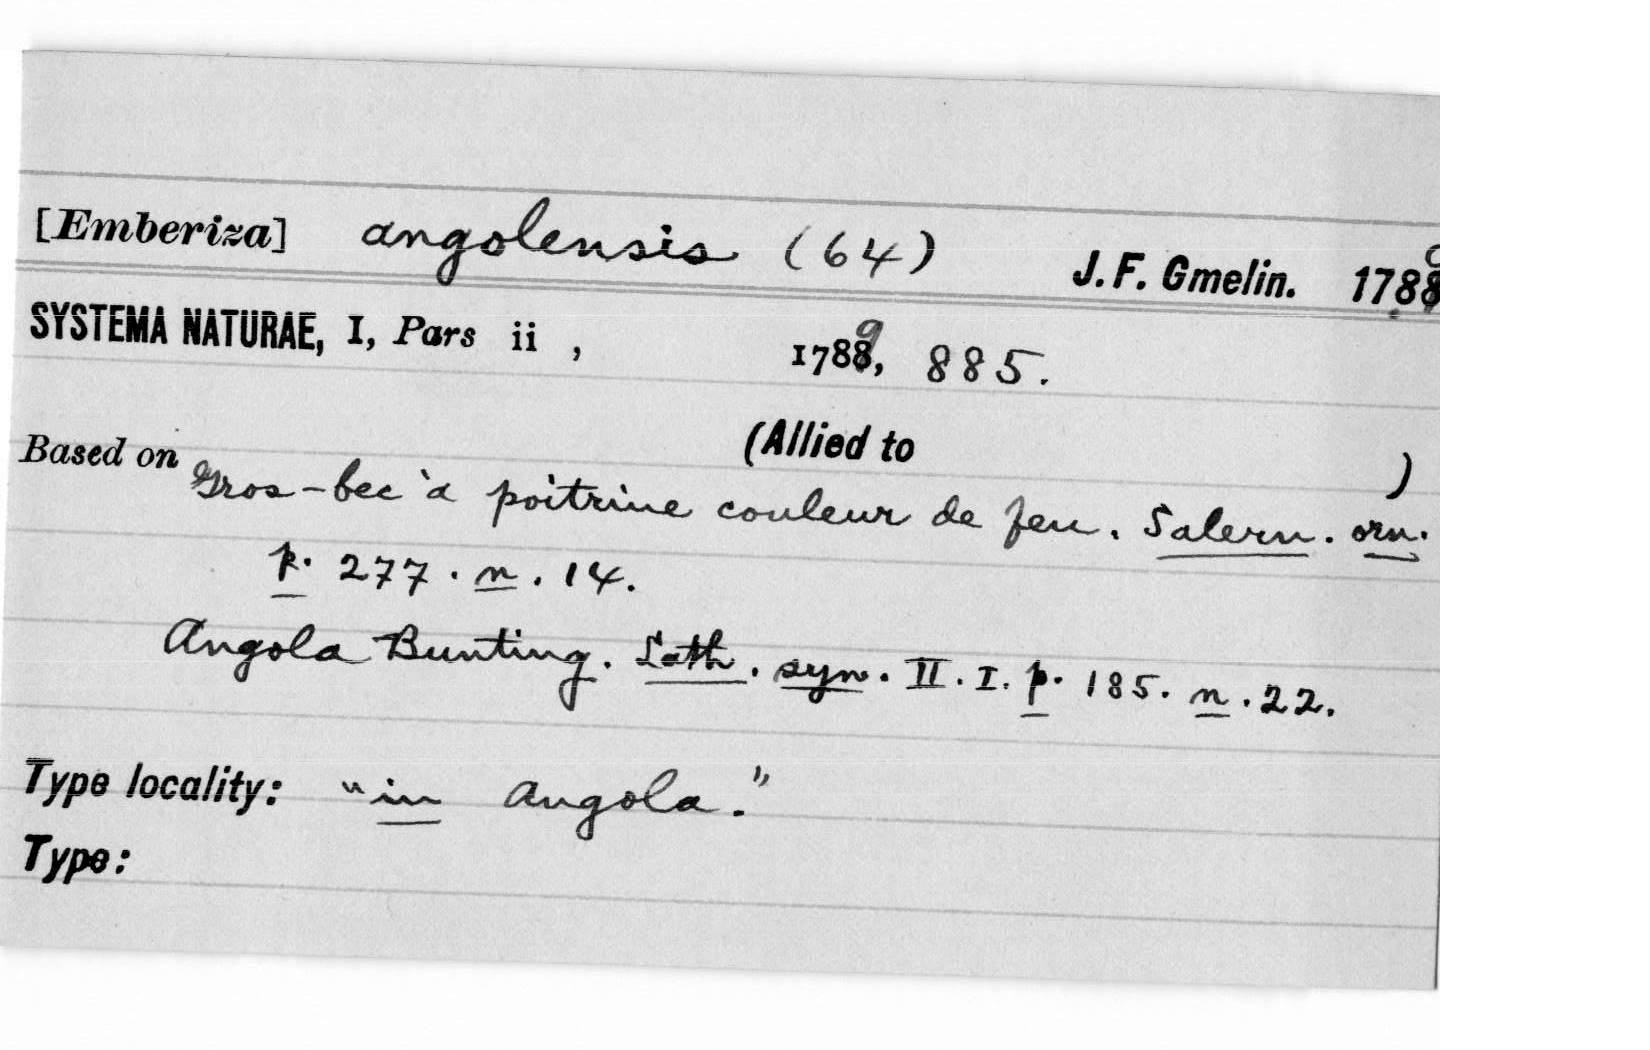 [Emberiza] angolensis (64) J. F. Gmelin. 1789
SYSTEMA NATURAE, I, Pars ii, 1789, 885.
(Allied to )
Based on Gros-bec à poitrine couleur de feu. Salern. orn.
p. 277. n. 14.
Angola Bunting. Lath. syn. II. I. p. 185. n. 22.
Type locality: "in Angola."
Type: